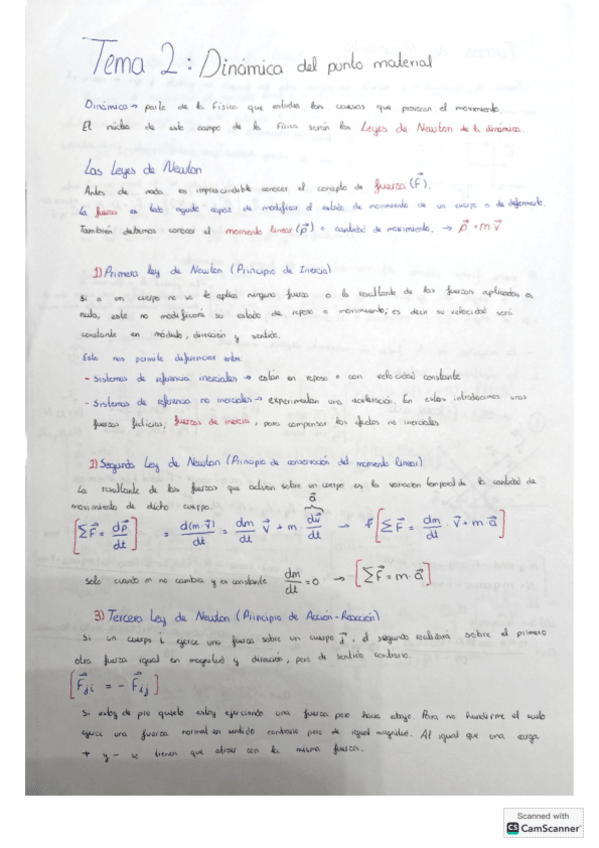 Tema 2: Dinámica del punto material
Dinámica → parte de la Física que estudia las causas que provocan el movimiento.
El núcleo de este campo de la Física serán las Leyes de Newton de la dinámica.
Las Leyes de Newton
Antes de nada es imprescindible conocer el concepto de fuerza (F⃗).
La fuerza es todo agente capaz de modificar el estado de movimiento de un cuerpo o de deformarlo.
También debemos conocer el momento lineal (p⃗) o cantidad de movimiento. → p⃗ = m v⃗
1) Primera Ley de Newton (Principio de Inercia)
Si a un cuerpo no se le aplica ninguna fuerza o la resultante de las fuerzas aplicadas es
nula, este no modificará su estado de reposo o movimiento; es decir su velocidad será
constante en módulo, dirección y sentido.
Esto nos permite diferenciar entre
- Sistemas de referencia inerciales → están en reposo o con velocidad constante
- Sistemas de referencia no inerciales → experimentan una aceleración. En estos introducimos unas
fuerzas ficticias, fuerzas de inercia, para compensar los efectos no inerciales
2) Segunda Ley de Newton (Principio de conservación del momento lineal)
La resultante de las fuerzas que actúan sobre un cuerpo es la variación temporal de la cantidad de
movimiento de dicho cuerpo.
[ΣF⃗ = dp⃗/dt] = d(m·v⃗)/dt = dm/dt v⃗ + m · dv⃗/dt (a⃗) → [ΣF⃗ = dm/dt · v⃗ + m · a⃗]
Solo cuando m no cambia y es constante dm/dt = 0 → [ΣF⃗ = m · a⃗]
3) Tercera Ley de Newton (Principio de Acción-Reacción)
Si un cuerpo i ejerce una fuerza sobre un cuerpo j, el segundo realizará sobre el primero
otra fuerza igual en magnitud y dirección, pero de sentido contrario.
[F⃗ji = - F⃗ij]
Si estoy de pie quieto estoy ejerciendo una fuerza peso hacia abajo. Para no hundirme el suelo
ejerce una fuerza normal en sentido contrario pero de igual magnitud. Al igual que una carga
+ y - se tienen que atraer con la misma fuerza.
Scanned with
CS CamScanner